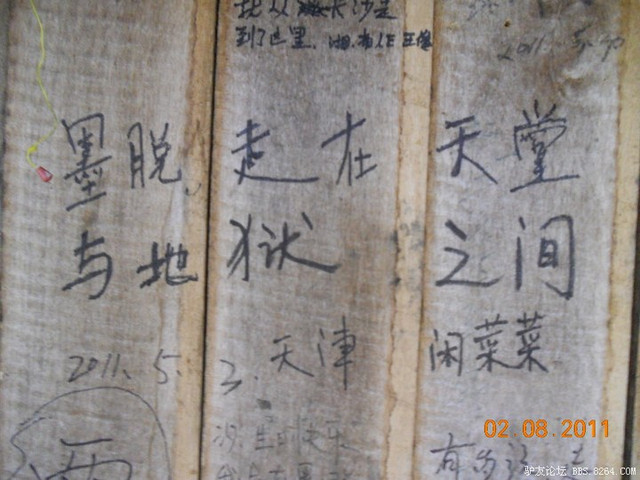 我从长沙走
到了这里.
2011.5.30
墨脱走在天堂
与地狱之间
2011.5.3.天津 闲菜菜
02.08.2011
驴友论坛 BBS.8264.com